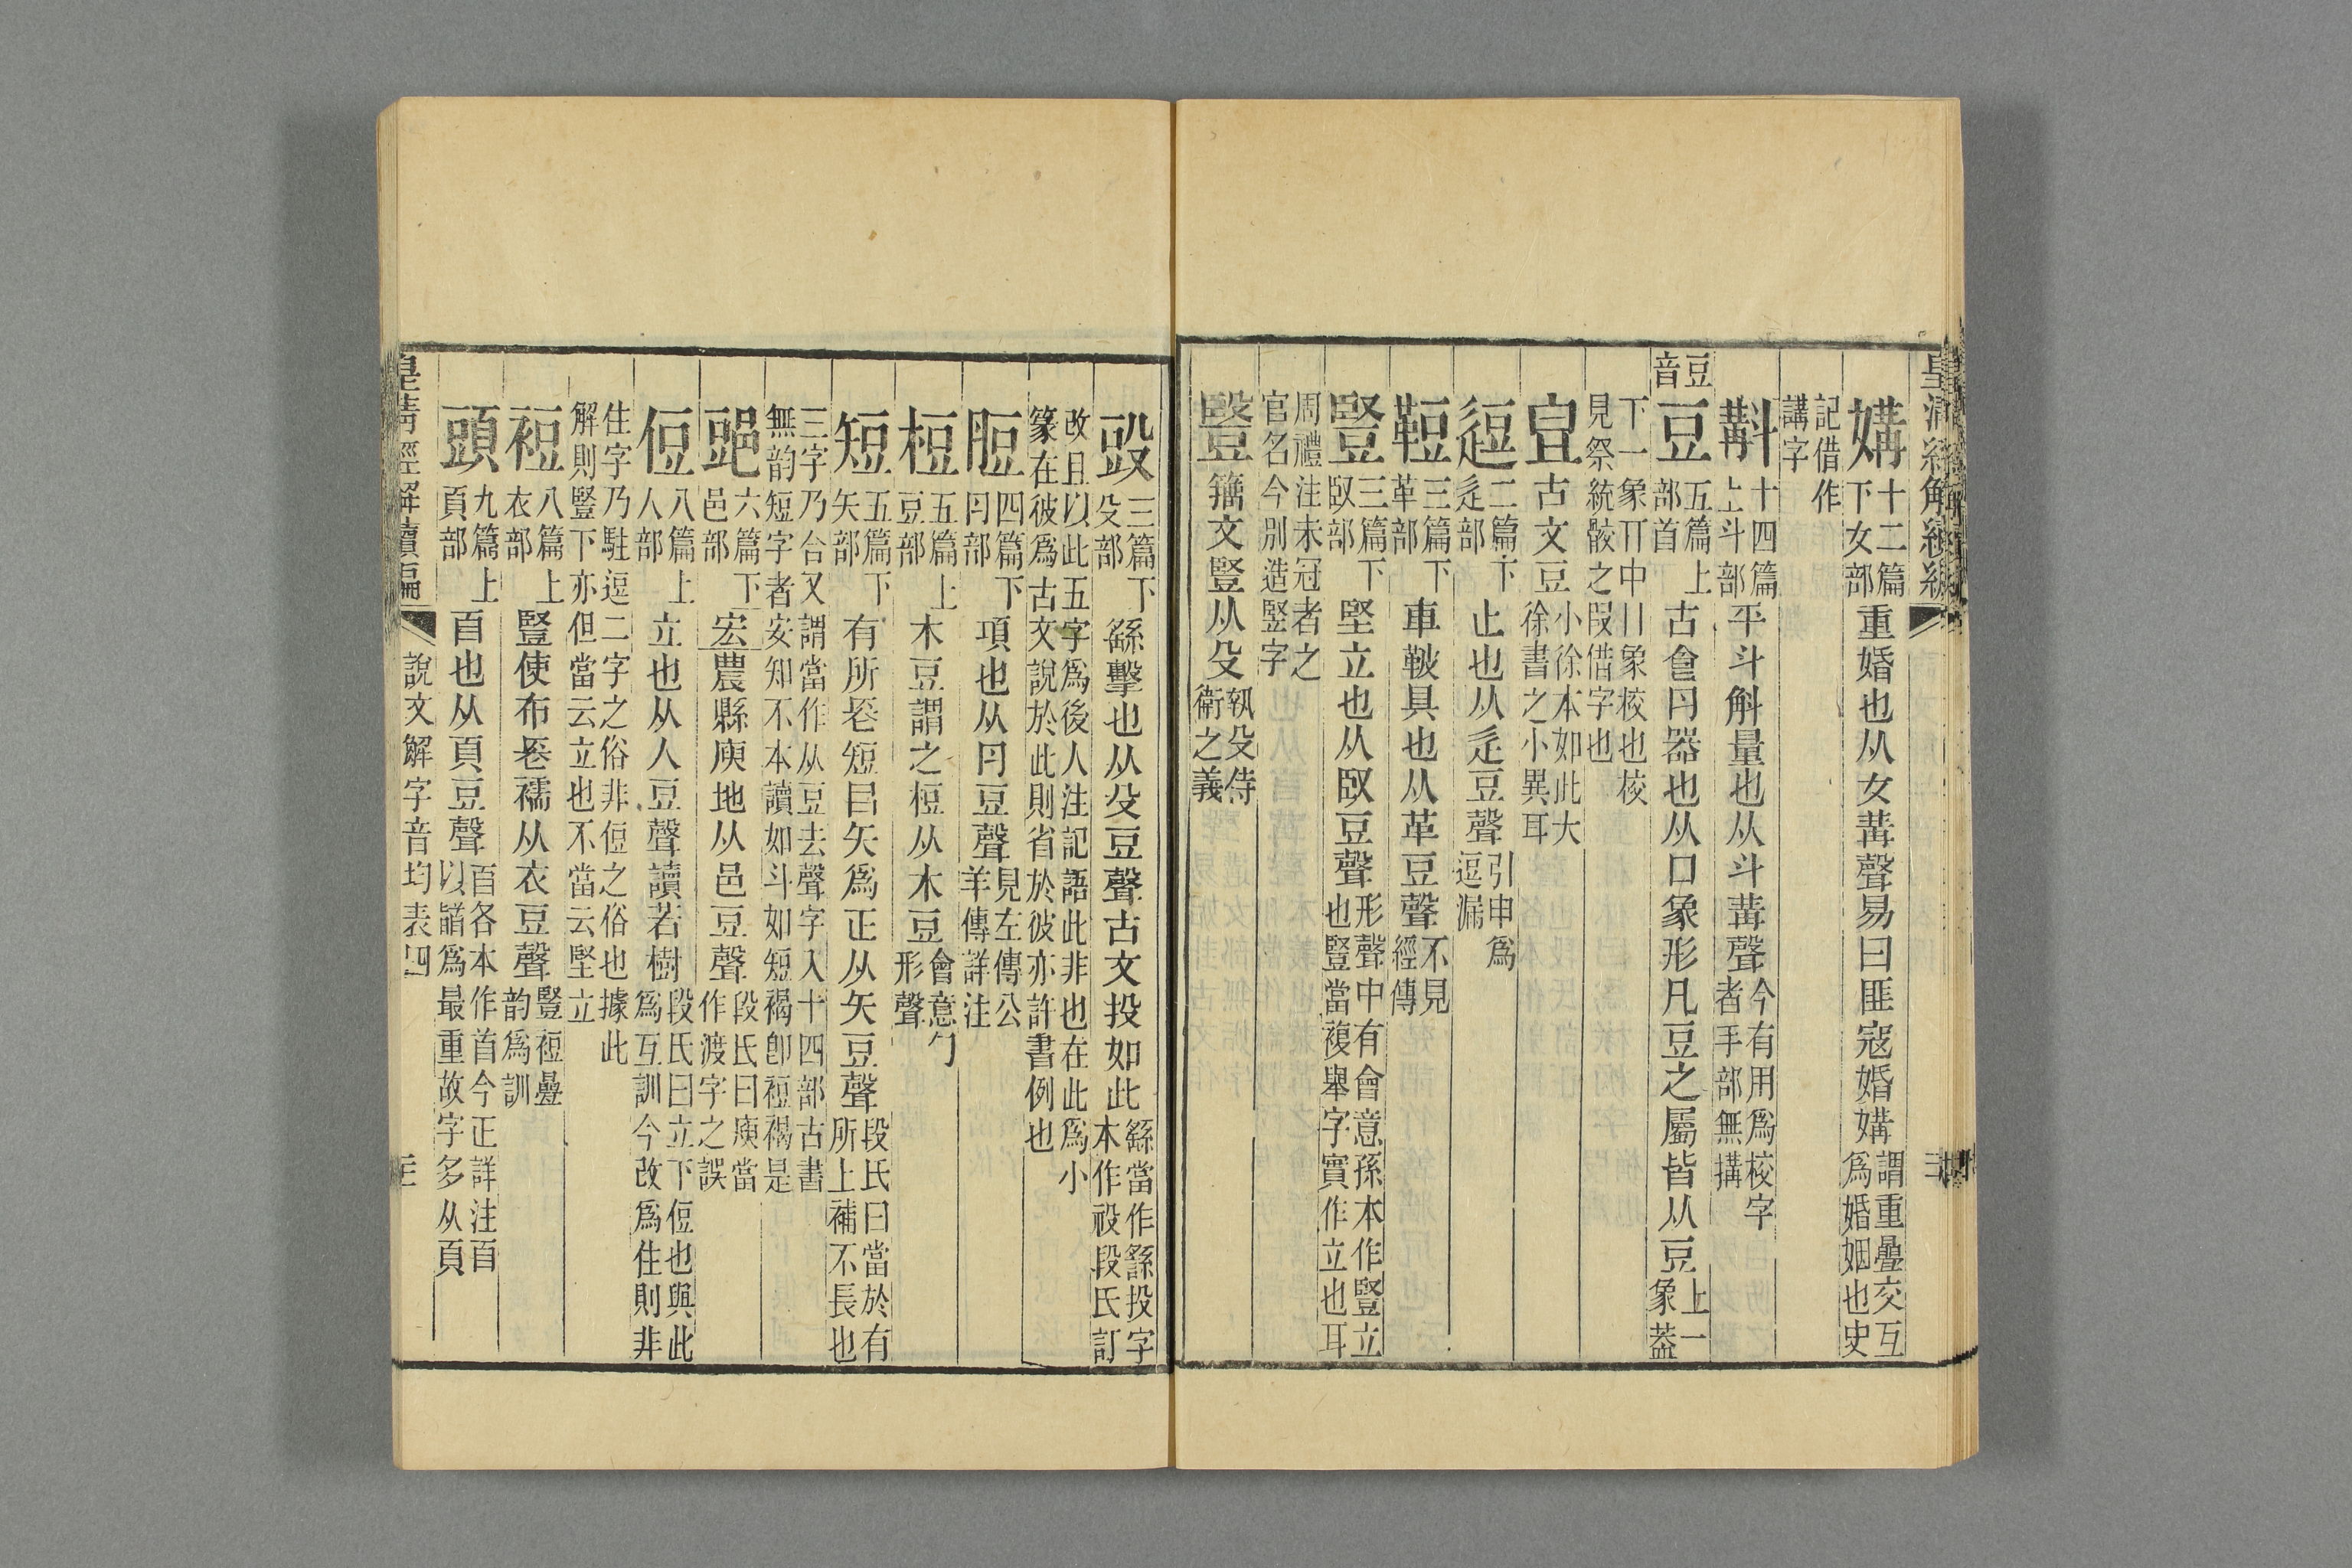 皇清經解續編
媾 十二篇下女部 重婚也从女冓聲易曰匪寇婚媾 謂重疊交互爲婚姻也史
記借作講字
斠 十四篇上斗部 平斗斛量也从斗冓聲 今有用爲校字者手部無搆
豆音 豆 五篇上部首 古食肉器也从口象形凡豆之屬皆从豆 上一象葢
下一象丌中口象校也校見祭統骹之叚借字也
𣅋 古文豆 小徐本如此大徐書之小異耳
逗 二篇下辵部 止也从辵豆聲 引申爲逗漏
䩳 三篇下革部 車鞁具也从革豆聲 不見經傳
豎 三篇下臤部 堅立也从臤豆聲 形聲中有會意孫本作豎立也豎當複舉字實作立也耳
周禮注未冠者之官名今別造竪字
豎 籒文豎从殳 執殳侍衛之義
毭 三篇下殳部 繇擊也从殳豆聲古文投如此 繇當作䌛投字本作祋段氏訂
改且以此五字爲後人注記語此非也在此爲小篆在彼爲古文說於此則省於彼亦許書例也
脰 四篇下肉部 項也从肉豆聲 見左傳公羊傳詳注
梪 五篇上豆部 木豆謂之梪从木豆 會意勹形聲
短 五篇下矢部 有所長短㠯矢爲正从矢豆聲 段氏曰當於有所上補不長也
三字乃合又謂當作从豆去聲字入十四部古書無韵短字者安知不本讀如斗如短褐卽裋褐是
郖 六篇下邑部 宏農縣庾地从邑豆聲 段氏曰庾當作渡字之誤
侸 八篇上人部 立也从人豆聲讀若樹 段氏曰立下侸也與此爲互訓今改爲住則非
住字乃駐逗二字之俗非侸之俗也據此解則豎下亦但當云立也不當云堅立
裋 八篇上衣部 豎使布長襦从衣豆聲 豎裋疊韵爲訓
頭 九篇上頁部 𦣻也从頁豆聲 𦣻各本作首今正詳注𦣻以䭫爲最重故字多从頁
皇清經解續編 說文解字音均表四